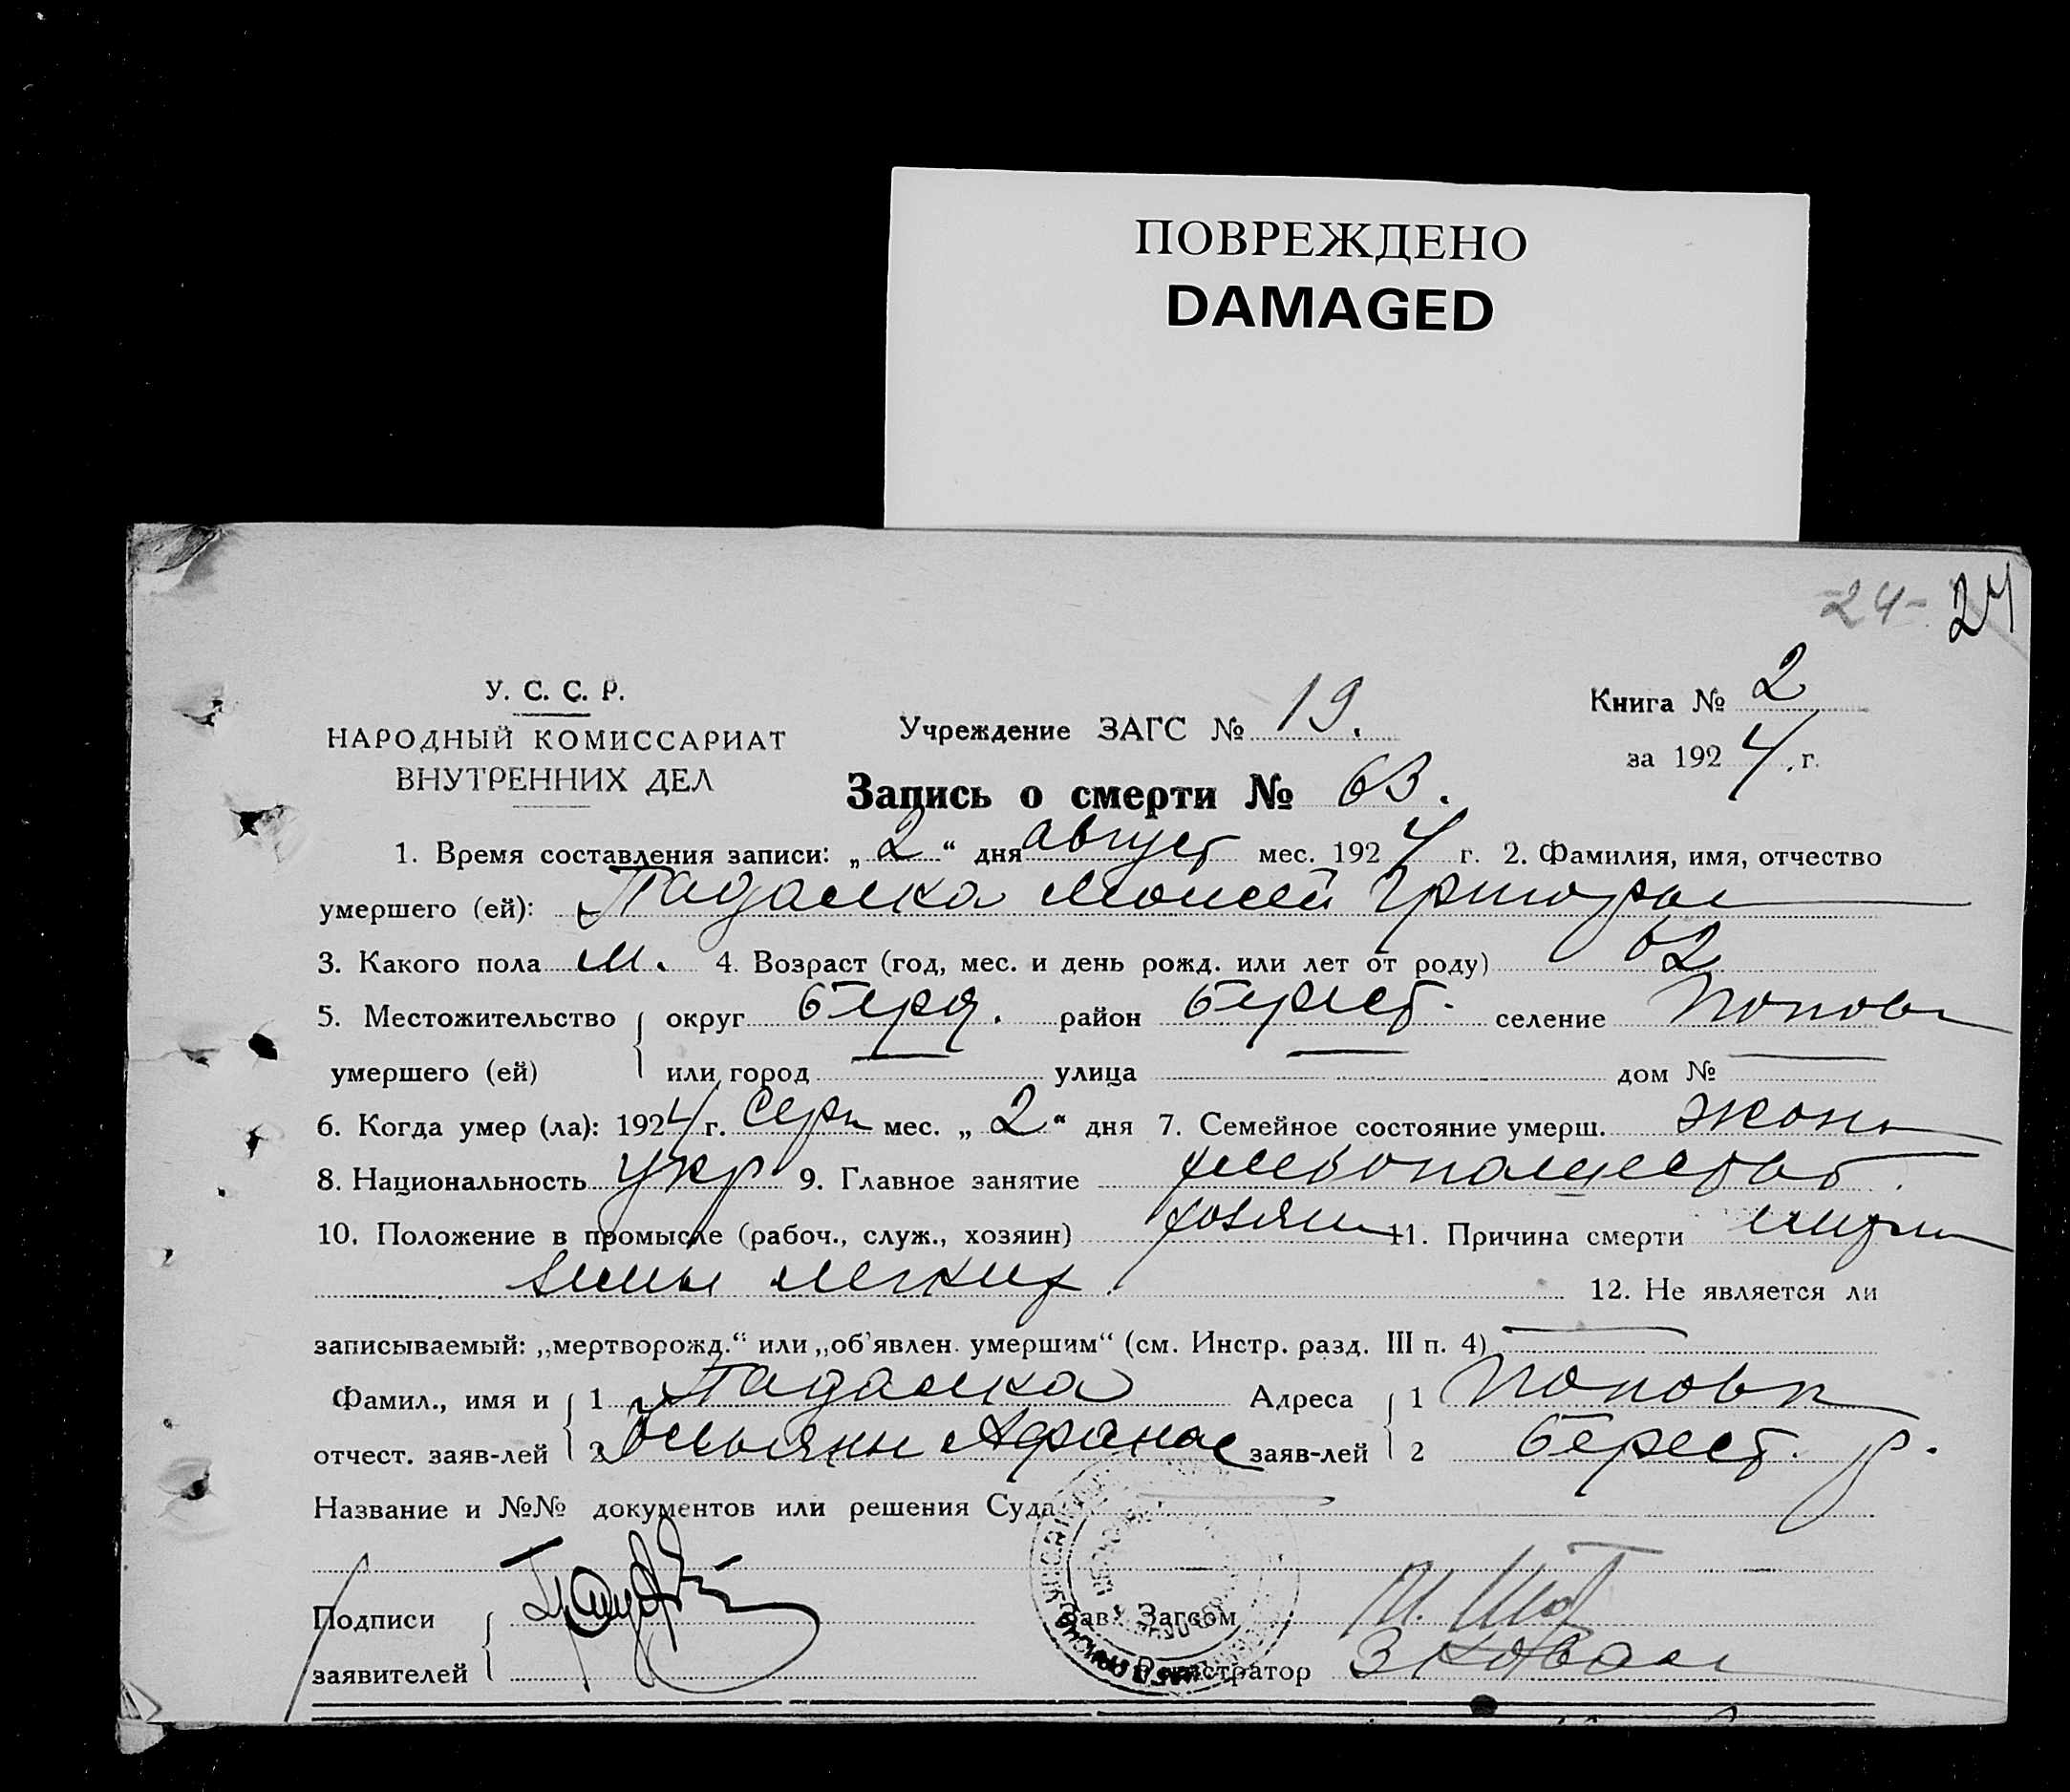 ПОВРЕЖДЕНО
DAMAGED
-24- 24
У. С. С. Р.
НАРОДНЫЙ КОМИССАРИАТ
ВНУТРЕННИХ ДЕЛ
Учреждение ЗАГС № 19.
Книга № 2
за 1924 г.
Запись о смерти № 63.
1. Время составления записи: „2“ дня август мес. 1924 г. 2. Фамилия, имя, отчество
умершего (ей): Падалка Моисей Григорьев
3. Какого пола м. 4. Возраст (год, мес. и день рожд. или лет от роду) 62
5. Местожительство округ Берд. район Берест. селение Поповк
умершего (ей) или город — улица — дом № —
6. Когда умер (ла): 1924 г. серп мес. „2“ дня 7. Семейное состояние умерш. жон
8. Национальность укр 9. Главное занятие хлебопашество
10. Положение в промысле (рабоч., служ., хозяин) хозяин 11. Причина смерти
легких 12. Не является ли
записываемый: „мертворожд.“ или „об’явлен. умершим“ (см. Инстр. разд. III п. 4) —
Фамил., имя и 1 Падалка Адреса 1 Поповк
отчест. заяв-лей 2 Афанас заяв-лей 2 Берест. р.
Название и №№ документов или решения Суда —
Подписи Зав. Загсом
заявителей Регистратор